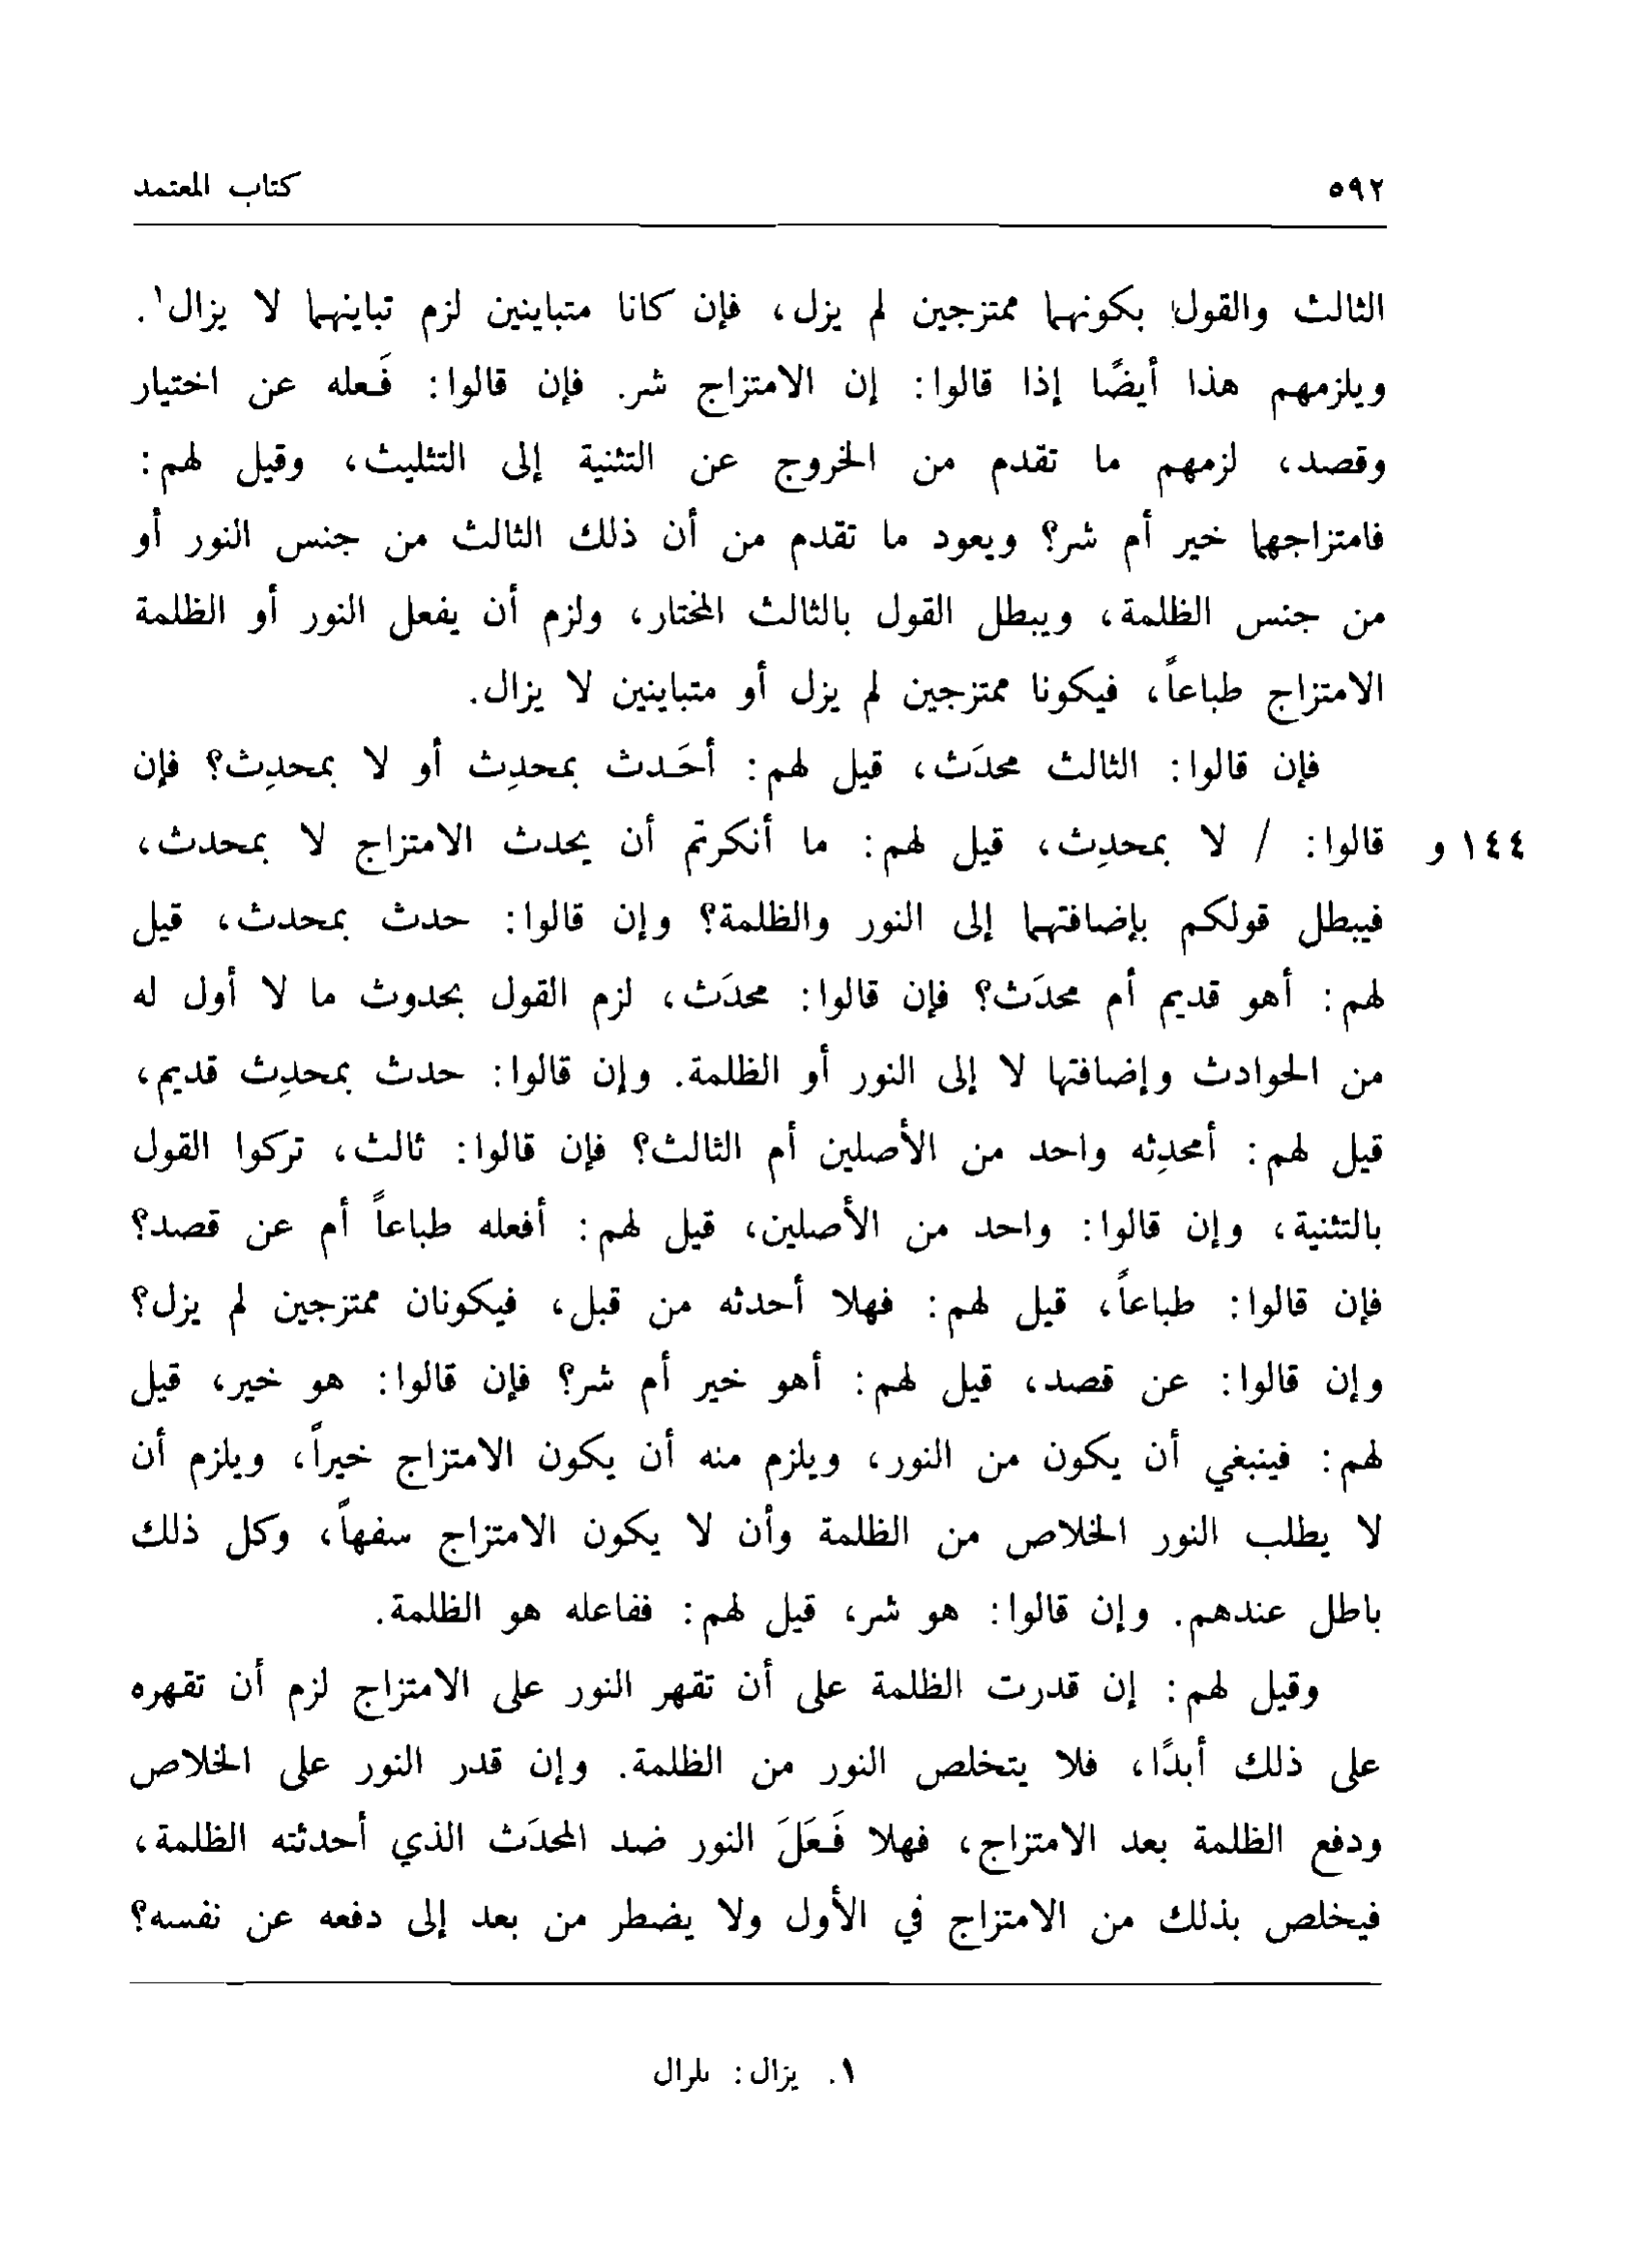 ٥٩٢ كتاب المعتمد
الثالث والقول بكونهما ممتزجين لم يزل، فإن كانا متباينين لزم تباينهما لا يزال١.
ويلزمهم هذا أيضًا إذا قالوا: إن الامتزاج شر. فإن قالوا: فَعله عن اختيار
وقصد، لزمهم ما تقدم من الخروج عن التثنية إلى التثليث، وقيل لهم:
فامتزاجهما خير أم شر؟ ويعود ما تقدم من أن ذلك الثالث من جنس النور أو
من جنس الظلمة، ويبطل القول بالثالث المختار، ولزم أن يفعل النور أو الظلمة
الامتزاج طباعاً، فيكونا ممتزجين لم يزل أو متباينين لا يزال.
فإن قالوا: الثالث محدَث، قيل لهم: أحَدث بمحدِث أو لا بمحدِث؟ فإن
١٤٤ و قالوا: / لا بمحدِث، قيل لهم: ما أنكرتم أن يحدث الامتزاج لا بمحدث،
فيبطل قولكم بإضافتهما إلى النور والظلمة؟ وإن قالوا: حدث بمحدث، قيل
لهم: أهو قديم أم محدَث؟ فإن قالوا: محدَث، لزم القول بحدوث ما لا أول له
من الحوادث وإضافتها لا إلى النور أو الظلمة. وإن قالوا: حدث بمحدِث قديم،
قيل لهم: أمحدِثه واحد من الأصلين أم الثالث؟ فإن قالوا: ثالث، تركوا القول
بالتثنية، وإن قالوا: واحد من الأصلين، قيل لهم: أفعله طباعاً أم عن قصد؟
فإن قالوا: طباعاً، قيل لهم: فهلا أحدثه من قبل، فيكونان ممتزجين لم يزل؟
وإن قالوا: عن قصد، قيل لهم: أهو خير أم شر؟ فإن قالوا: هو خير، قيل
لهم: فينبغي أن يكون من النور، ويلزم منه أن يكون الامتزاج خيراً، ويلزم أن
لا يطلب النور الخلاص من الظلمة وأن لا يكون الامتزاج سفهاً، وكل ذلك
باطل عندهم. وإن قالوا: هو شر، قيل لهم: ففاعله هو الظلمة.
وقيل لهم: إن قدرت الظلمة على أن تقهر النور على الامتزاج لزم أن تقهره
على ذلك أبدًا، فلا يتخلص النور من الظلمة. وإن قدر النور على الخلاص
ودفع الظلمة بعد الامتزاج، فهلا فَعَلَ النور ضد المحدَث الذي أحدثته الظلمة،
فيخلص بذلك من الامتزاج في الأول ولا يضطر من بعد إلى دفعه عن نفسه؟
١. يزال: